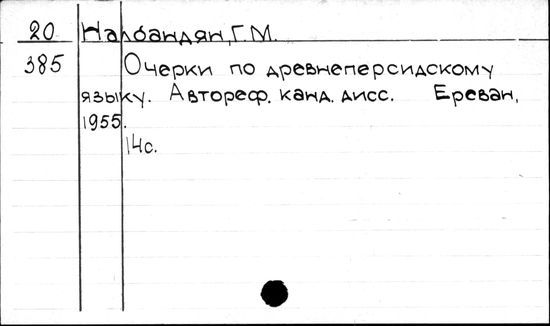 20 Налбандян, Г.М.
385 Очерки по древнеперсидскому
языку. Автореф. канд. дисс. Ереван,
1955.
14с.